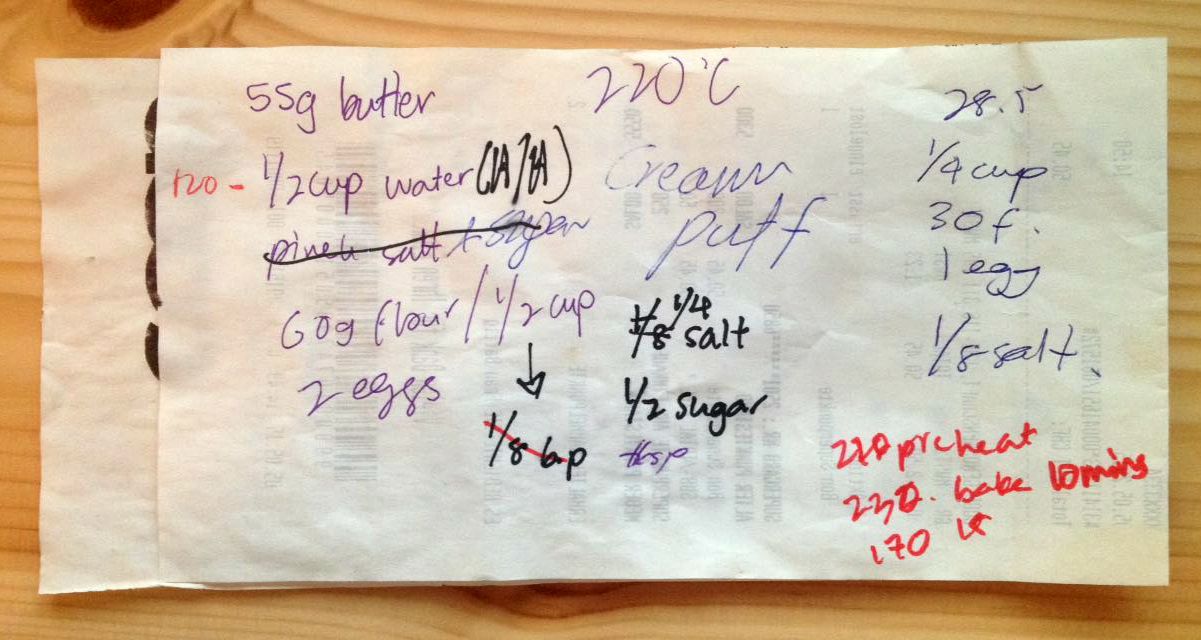 55g butter
120 - 1/2 cup water
pinch salt + sugar
60g flour / 1/2 cup
2 eggs
1/8 b.p
220°C
Cream
puff
1/8 1/4 salt
1/2 sugar
tbsp
28.5
1/4 cup
30 f.
1 egg
1/8 salt
preheat
bake 10 mins
170